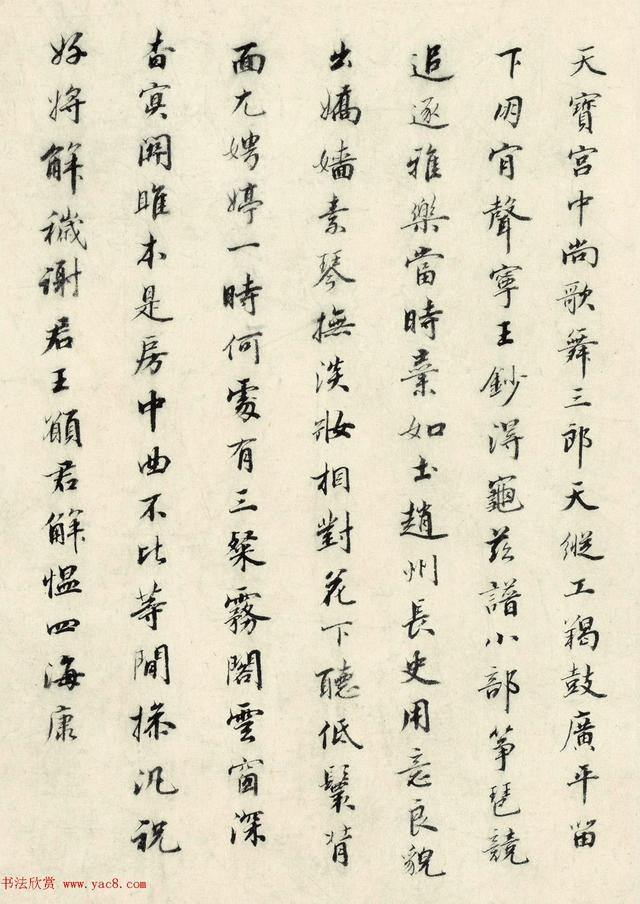 天寶宮中尚歌舞三郎天縱工羯鼓廣平留
下用宵聲寧王鈔得龜茲譜小部箏琶競
追逐雅樂當時棄如土趙州長史用意良貌
出嬌嬙素琴撫淡妝相對花下聽低鬟背
面尤娉婷一時何處有三粲霧閣雲窗深
杳冥關雎本是房中曲不比等閒操汎祝
好將解穢謝君王願君解慍四海康
书法欣赏 www.yac8.com